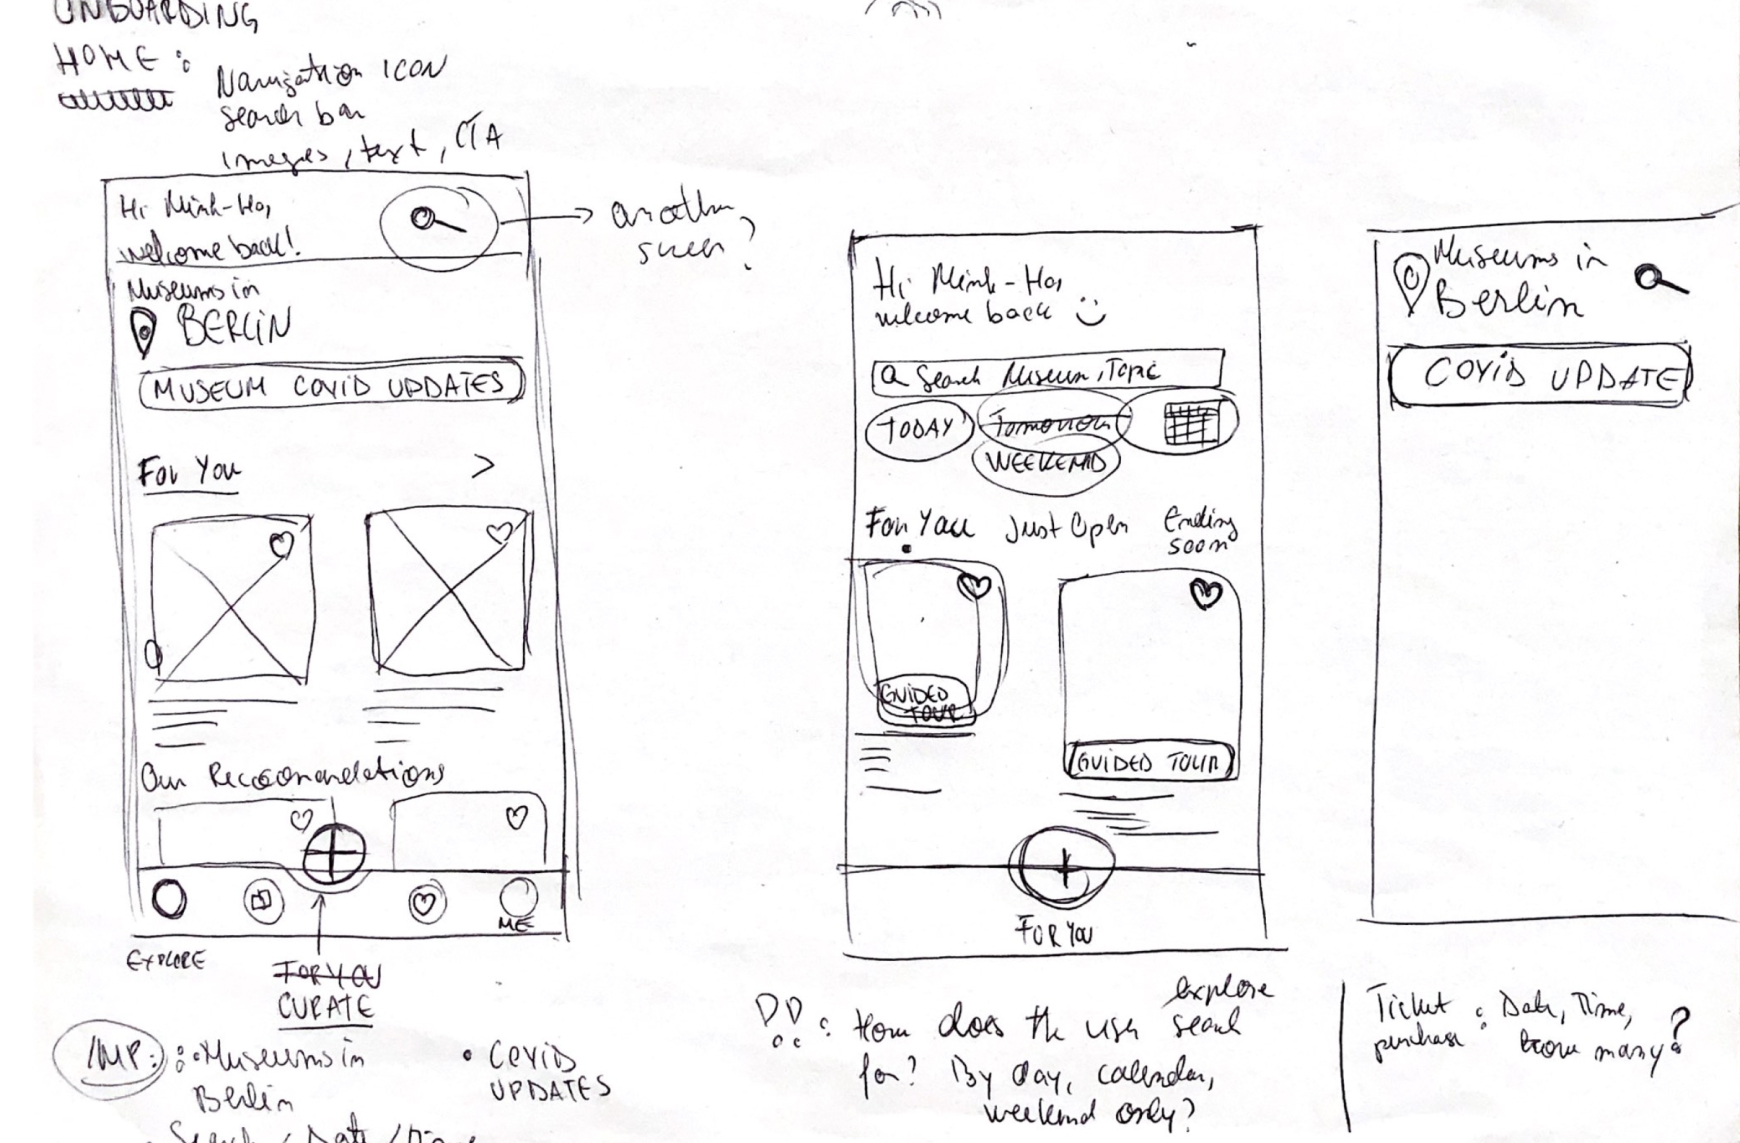 ONBOARDING
HOME :
Navigation ICON
search bar
images, text, CTA
Hi Minh-Ho,
welcome back!
another
screen?
Museums in
BERLIN
MUSEUM COVID UPDATES
For You >
Our Reccomendations
ME
EXPLORE
FOR YOU
CURATE
IMP: : • Museums in
Berlin
• COVID
UPDATES
Search / Date /
Hi Minh-Ho,
welcome back
Search Museum, Topic
TODAY
Tomorrow
WEEKEND
For You
Just Open
Ending
soon
GUIDED
TOUR
GUIDED TOUR
FOR YOU
explore
How does the user search
for? By day, calendar,
weekend only?
Museums in
Berlin
COVID UPDATE
Ticket : Date, Time,
purchase how many?